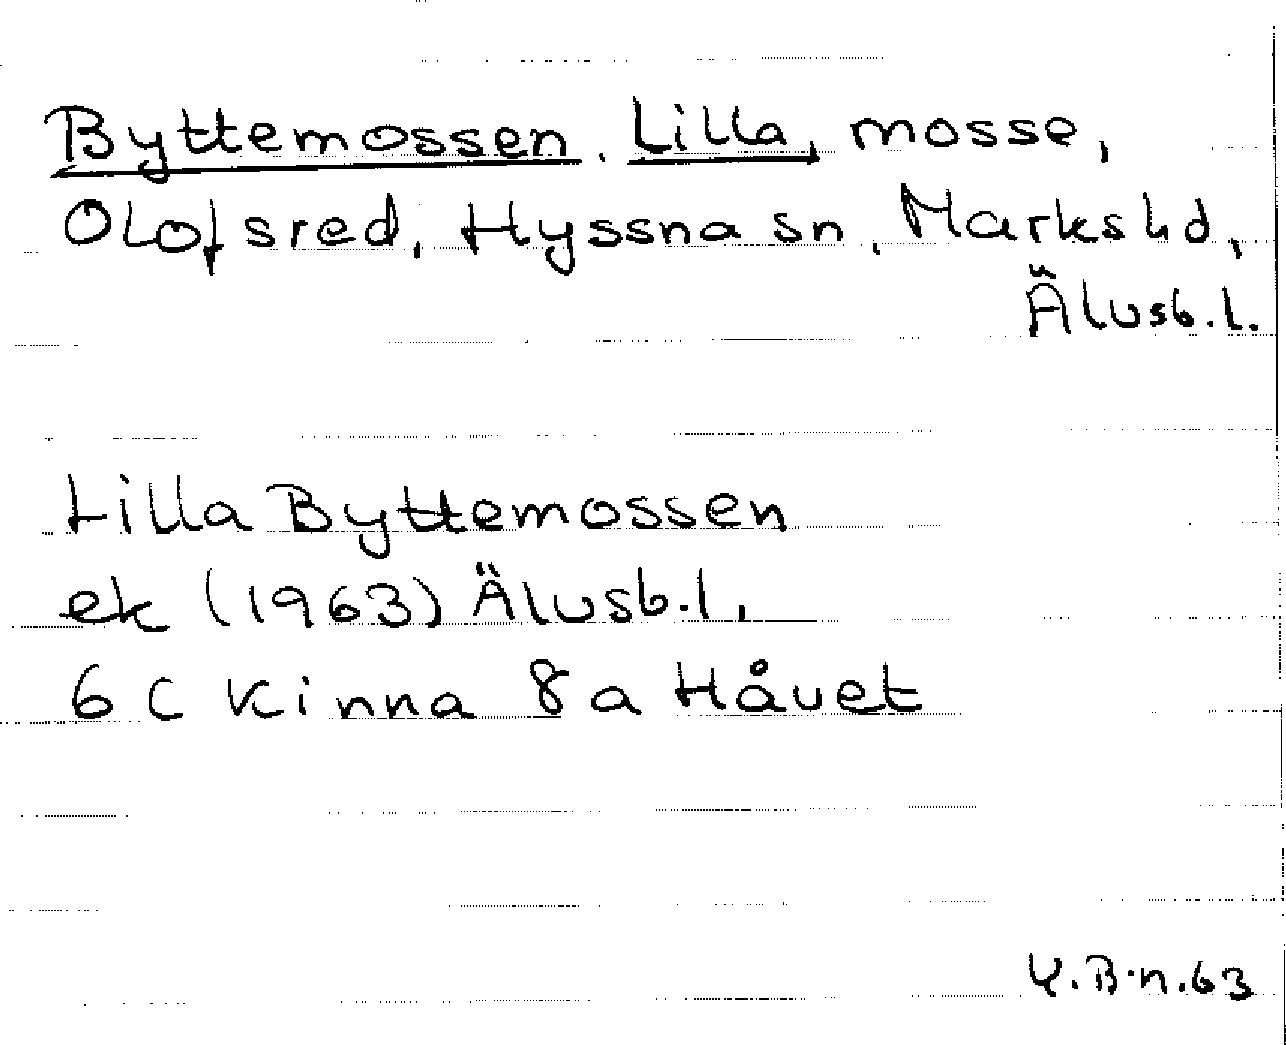 Byttemossen, Lilla, mosse,
Olofsred, Hyssna sn, Marks hd,
Älvsb.l.
Lilla Byttemossen
ek (1963) Älvsb.l.
6 C Kinna 8 a Håvet
Y.B-n.63